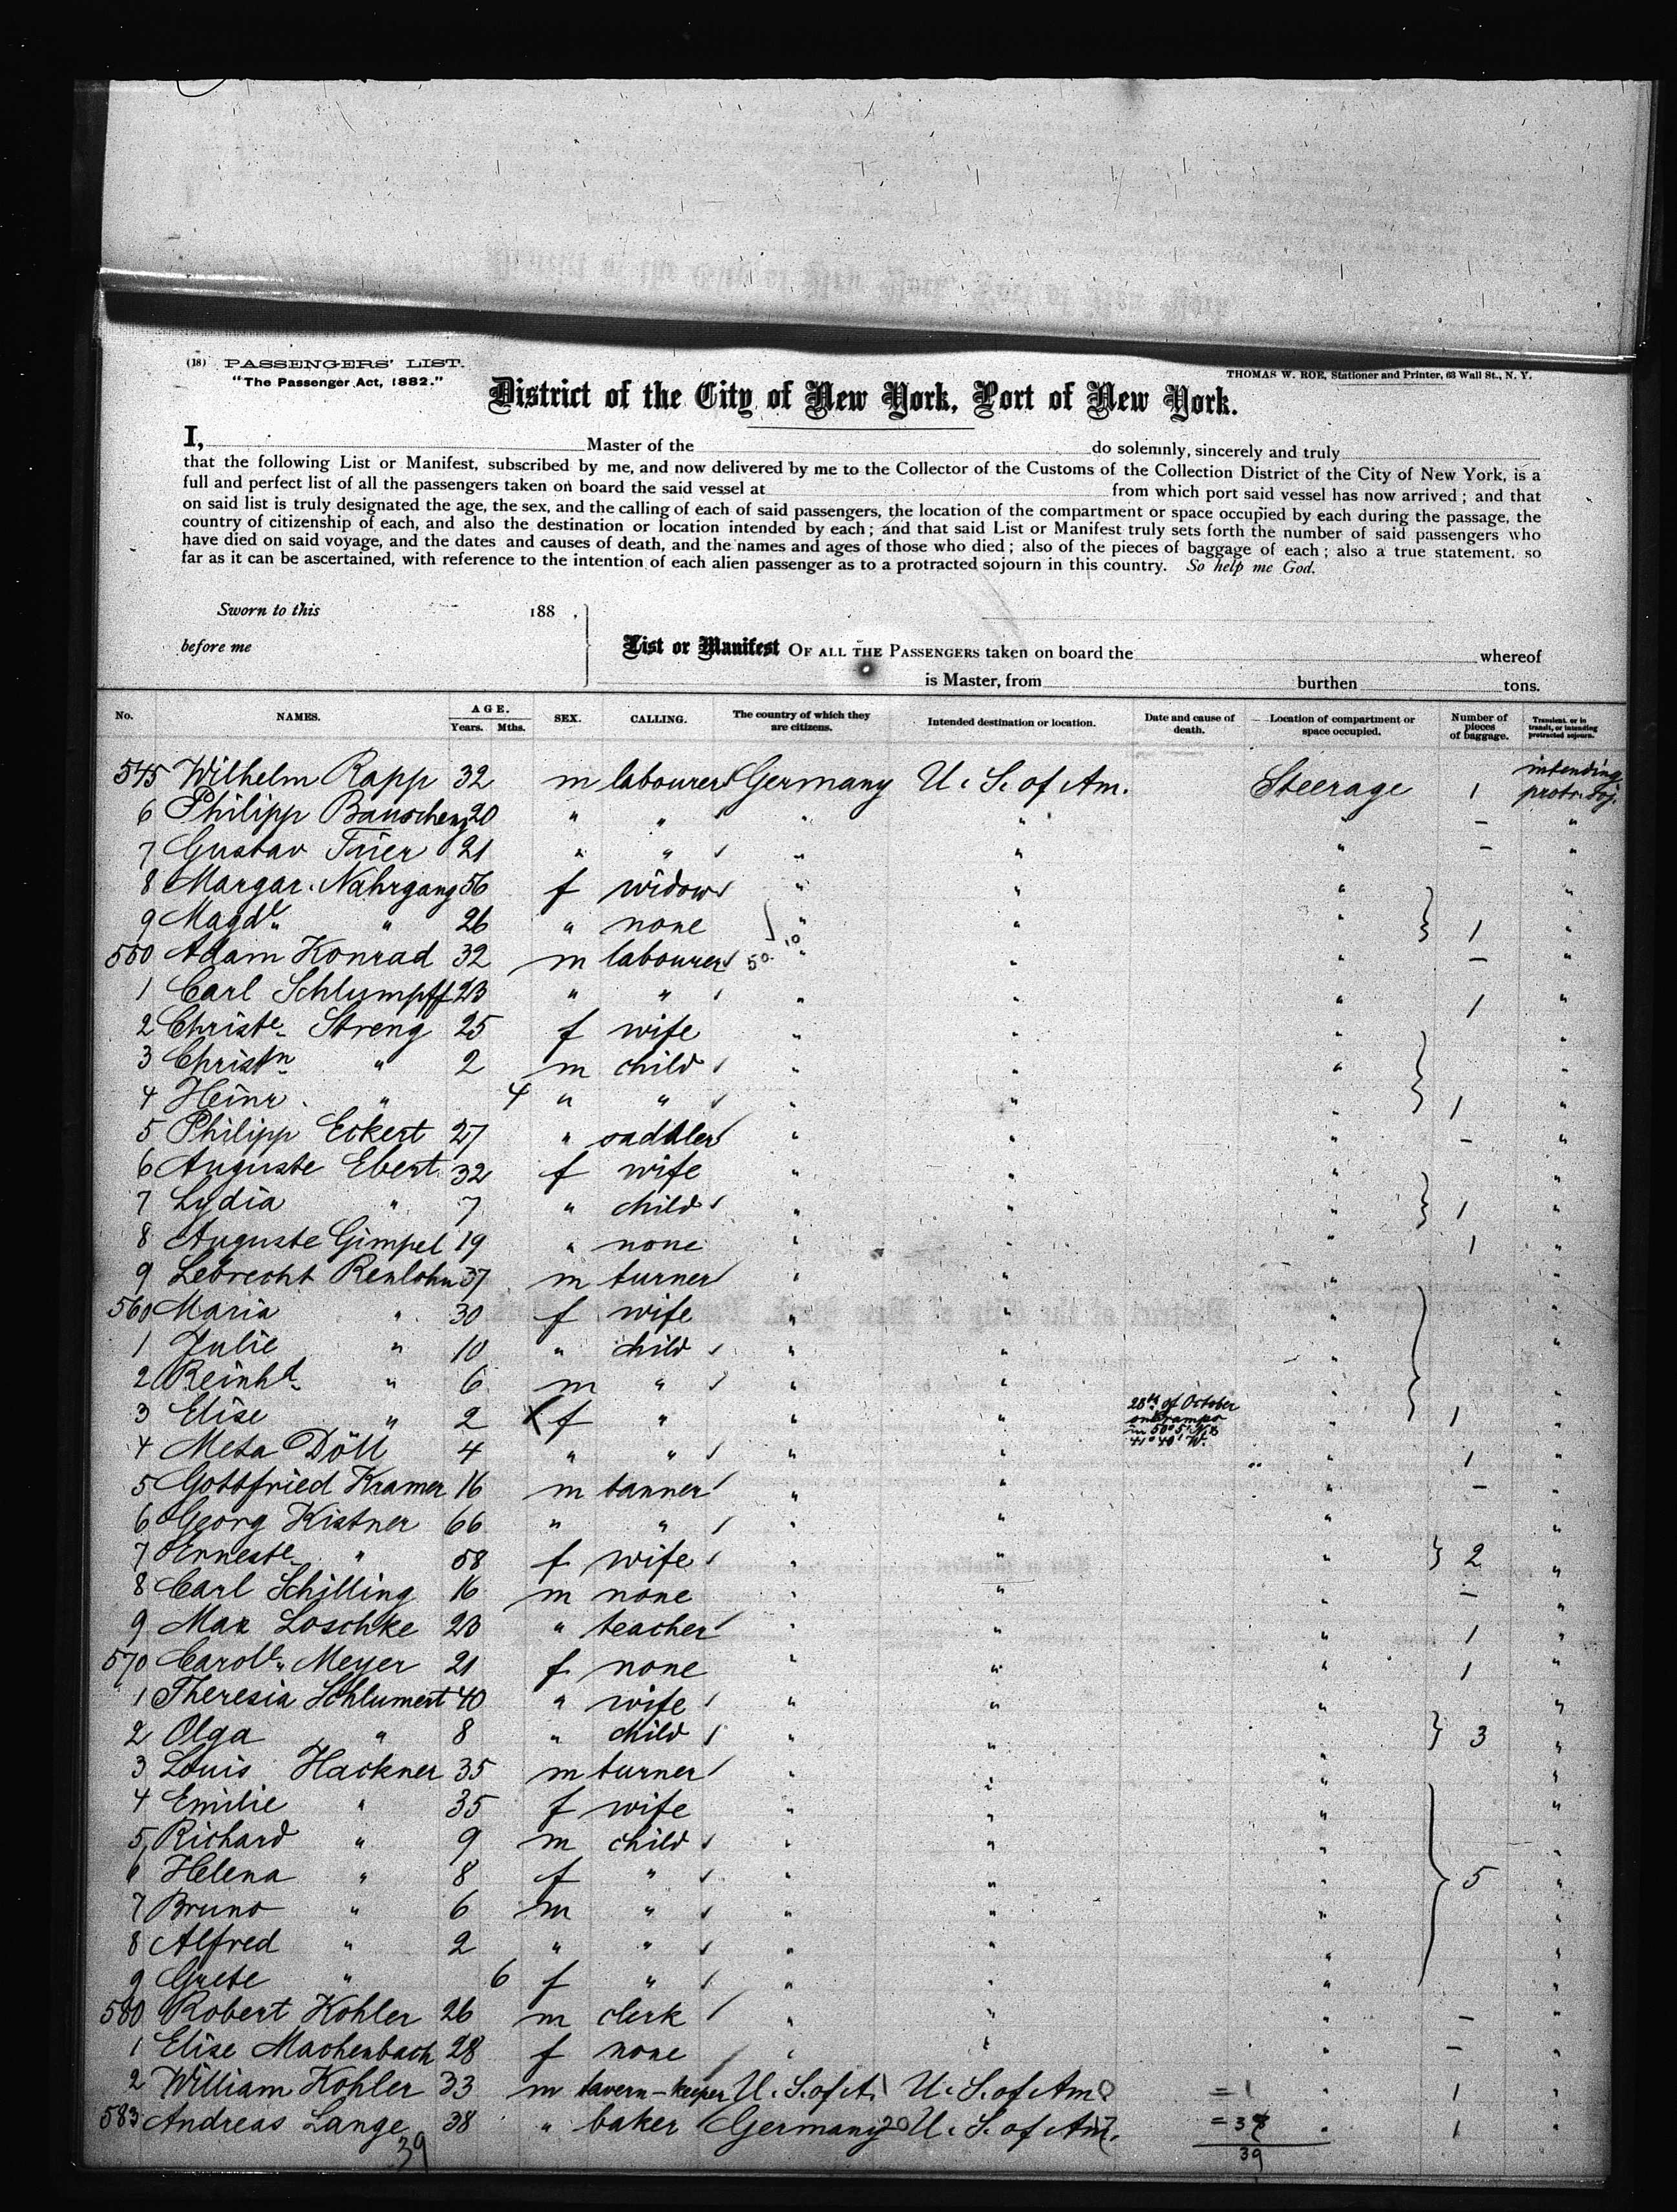 (18) PASSENGERS' LIST.
"The Passenger Act, 1882."
THOMAS W. ROE, Stationer and Printer, 63 Wall St., N. Y.
District of the City of New York, Port of New York.
I, Master of the do solemnly, sincerely and truly
that the following List or Manifest, subscribed by me, and now delivered by me to the Collector of the Customs of the Collection District of the City of New York, is a
full and perfect list of all the passengers taken on board the said vessel at from which port said vessel has now arrived; and that
on said list is truly designated the age, the sex, and the calling of each of said passengers, the location of the compartment or space occupied by each during the passage, the
country of citizenship of each, and also the destination or location intended by each; and that said List or Manifest truly sets forth the number of said passengers who
have died on said voyage, and the dates and causes of death, and the names and ages of those who died; also of the pieces of baggage of each; also a true statement, so
far as it can be ascertained, with reference to the intention of each alien passenger as to a protracted sojourn in this country. So help me God.
Sworn to this 188 .
before me
List or Manifest OF ALL THE PASSENGERS taken on board the whereof
is Master, from burthen tons.
No. NAMES. AGE. Years. Mths. SEX. CALLING. The country of which they are citizens. Intended destination or location. Date and cause of death. Location of compartment or space occupied. Number of pieces of baggage. Transient, or in transit, or intending protracted sojourn.
545 Wilhelm Rapp 32 m labourer Germany U. S. of Am. Steerage 1 intending protr. soj.
6 Philipp 20 " " " " " - "
7 Gustav 21 " " " " " - "
8 Margar. Nahrgang 56 f widow " " " "
9 Magdl. " 26 " none " " " 1 "
550 Adam Konrad 32 m labourer " " " - "
1 Carl Schlumpff 23 " " " " " 1 "
2 Christe. Streng 25 f wife " " " "
3 Christn. " 2 m child " " " "
4 Heinr. " 4 " " " " " 1 "
5 Philipp Eckert 27 " saddler " " " - "
6 Auguste Ebert 32 f wife " " " "
7 Lydia " 7 " child " " " 1 "
8 Auguste Gimpel 19 " none " " " 1 "
9 Lebrecht 37 m turner " " "
560 Maria " 30 f wife " " "
1 Julie " 10 " child " " " "
2 Reinhd. " 6 m " " " " "
3 Elise " 2 f " " " 28th of October " 1 "
in 50° 5' N &
41° 40' W.
4 Meta Döll 4 " " " " " 1 "
5 Gottfried Kramer 16 m tanner " " " - "
6 Georg Kistner 66 " " " " " "
7 Erneste. " 58 f wife " " " 2 "
8 Carl Schilling 16 m none " " " - "
9 Max Loschke 23 " teacher " " " 1 "
570 Carole. Meyer 21 f none " " " 1 "
1 Theresia Schlumert 40 " wife " " " "
2 Olga " 8 " child " " " 3 "
3 Louis Hackner 35 m turner " " " "
4 Emilie " 35 f wife " " " "
5 Richard " 9 m child " " " "
6 Helena " 8 f " " " " 5 "
7 Bruno " 6 m " " " " "
8 Alfred " 2 " " " " " "
9 Grete " 6 f " " " " "
580 Robert Kohler 26 m clerk " " " - "
1 Elise Machenbach 28 f none " " " - "
2 William Kohler 33 m tavern-keeper U. S. of A. U. S. of Am = 1 " 1 "
583 Andreas Lange 38 " baker Germany 20 U. S. of Am. = 38 " 1 "
39 39